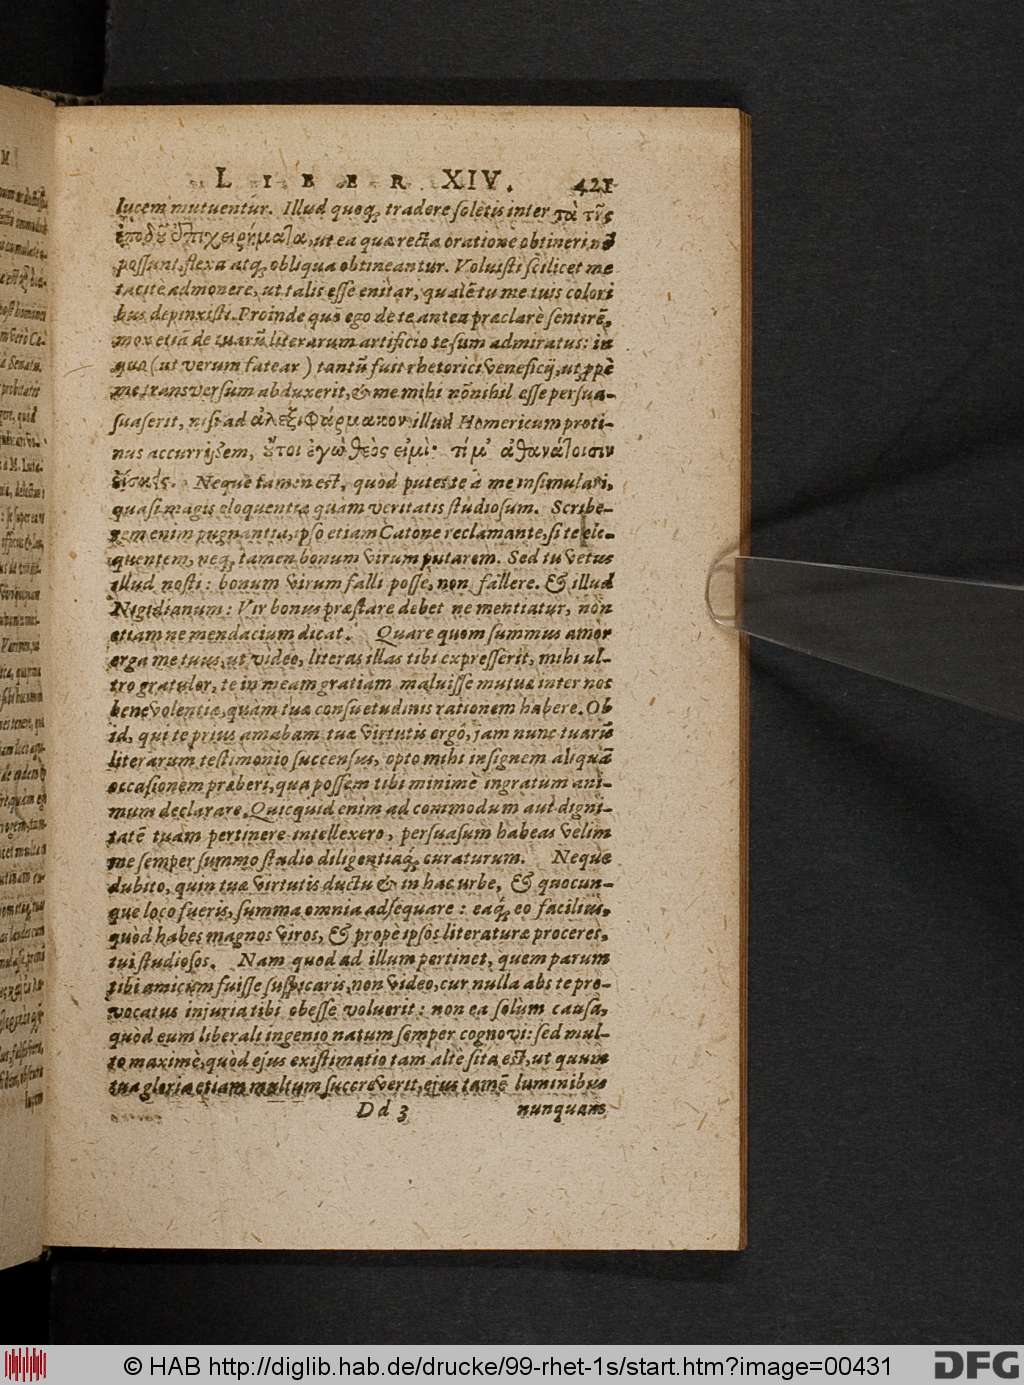 LIBER XIV. 421
lucem mutuentur. Illud quoq; tradere soletis inter τὰ τῆς
ut ea quæ recta oratione obtineri nõ
possunt, flexa atq; obliqua obtineantur. Voluisti scilicet me
tacite admonere, ut talis esse enitar, qualẽ tu me tuis colori
bus depinxisti. Proinde quo ego de te antea præclarè sentirẽ,
mox etiã de tuarũ literarum artificio te sum admiratus: in
quo (ut verum fatear) tantũ fuit rhetorici veneficij, ut ppè
me transversum abduxerit, & me mihi nõnihil esse persua-
suaserit, nisi ad ἀλεξιφάρμακον illud Homericum proti-
nus accurrissem, οὔτοι ἐγὼ θεὸς εἰμὶ· τί μ' ἀθανάτοισιν
ἐΐσκεις. Neque tamen est, quod putes te à me insimulari,
quasi magis eloquentiæ quàm veritatis studiosum. Scribe-
rem enim pugnantia, ipso etiam Catone reclamante, si te elo-
quentem, neq; tamen bonum virum putarem. Sed tu vetus
illud nosti: bonum virum falli posse, non fallere. & illud
Nigidianum: Vir bonus præstare debet ne mentiatur, non
etiam ne mendacium dicat. Quare quom summus amor
erga me tuus, ut video, literas illas tibi expresserit, mihi ul-
tro gratulor, te in meam gratiam maluisse mutuæ inter nos
benevolentiæ, quàm tuæ consuetudinis rationem habere. Ob
id, qui te prius amabam tuæ virtutis ergò, jam nunc tuarũ
literarum testimonio succensus, opto mihi insignem aliquã
occasionem præberi, qua possem tibi minimè ingratum ani-
mum declarare. Quicquid enim ad commodum aut digni-
tatẽ tuam pertinere intellexero, persuasum habeas velim
me semper summo studio diligentiaq; curaturum. Neque
dubito, quin tuæ virtutis ductu & in hac urbe, & quocun-
que loco fueris, summa omnia adsequare: eaq; eo facilius,
quòd habes magnos viros, & propè ipsos literaturæ proceres,
tui studiosos. Nam quod ad illum pertinet, quem parum
tibi amicum fuisse suspicaris, non video, cur nulla abs te pro-
vocatus injuria tibi obesse voluerit: non ea solùm causa,
quòd eum liberali ingenio natum semper cognovi: sed mul-
to maximè, quòd ejus existimatio tam altè sita est, ut quum
tua gloria etiam multum succreverit, ejus tamẽ luminibus
Dd 3 nunquam
© HAB http://diglib.hab.de/drucke/99-rhet-1s/start.htm?image=00431 DFG